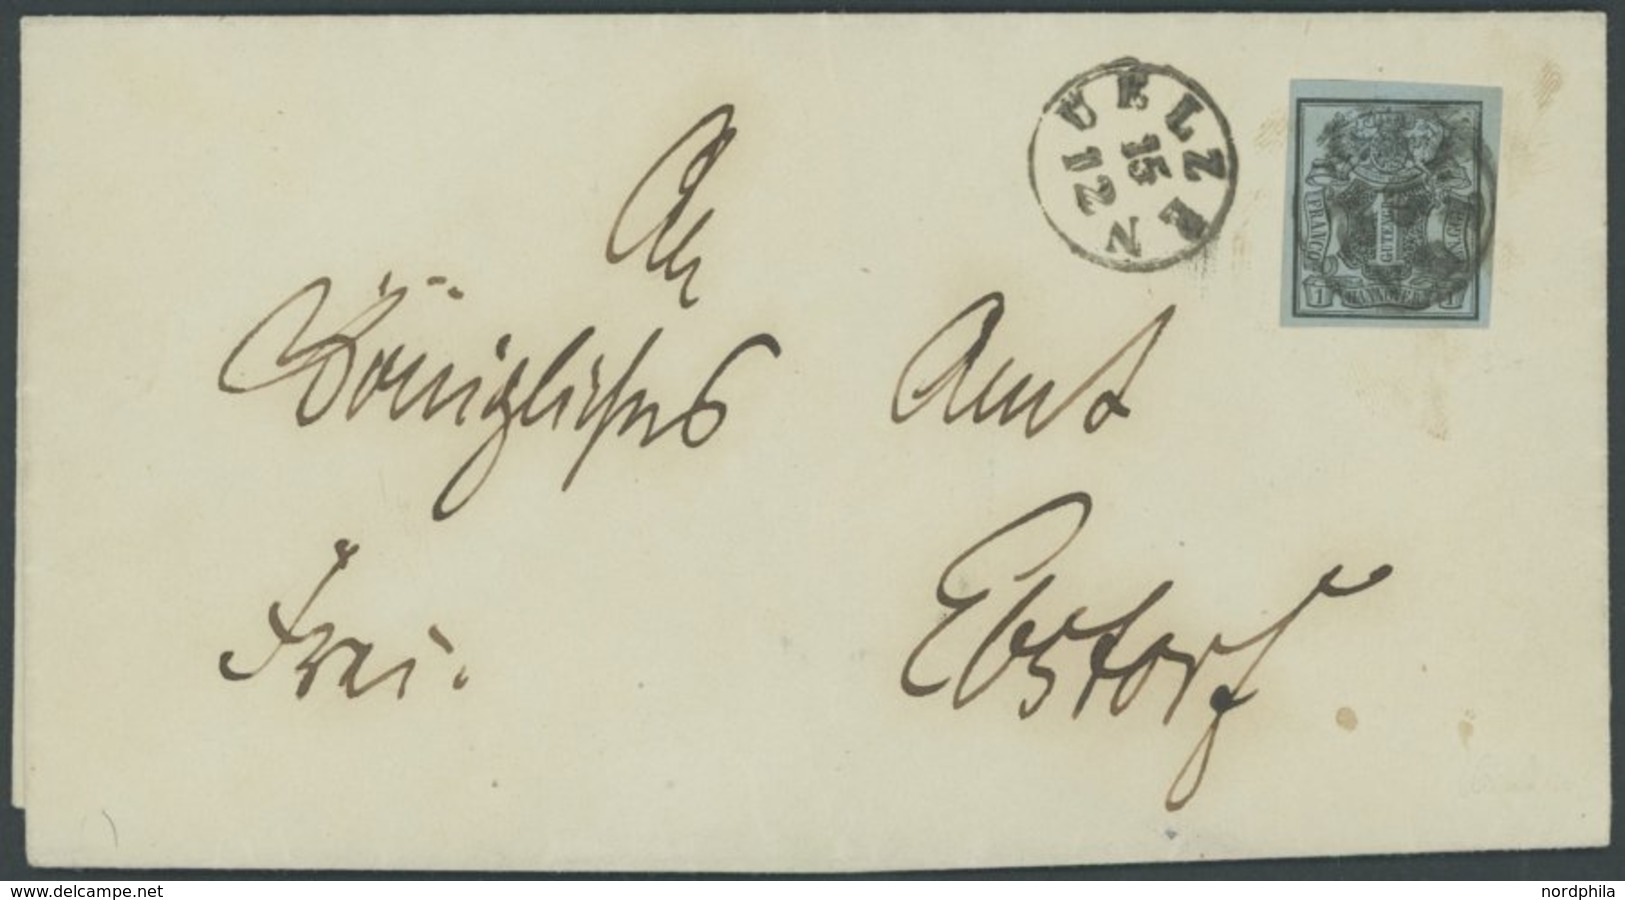 UELZEN
15
12 11
FRANCO
1 GUTENGR.
1 HANNOVER 1
An
Königliches Amt
Frei. Ebstorf
www.delcampe.net nordphila